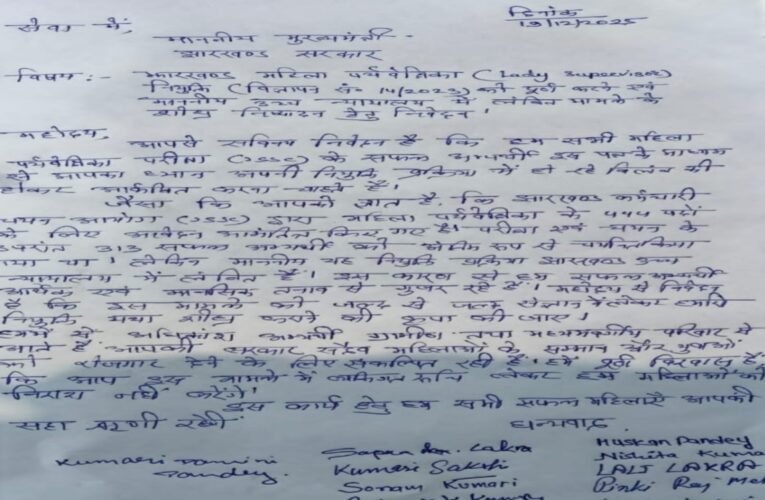 दिनांक
13/12/2025
सेवा में,
माननीय मुख्यमंत्री
झारखण्ड सरकार
विषय :- झारखण्ड महिला पर्यवेक्षिका (Lady Supervisor)
नियुक्ति (विज्ञापन सं० 14/2023) को पूर्ण करने एवं
माननीय उच्च न्यायालय में लंबित मामले के
शीघ्र निष्पादन हेतु निवेदन।
महोदय,
आपसे सविनय निवेदन है कि हम सभी महिला
पर्यवेक्षिका परीक्षा (JSSC) के सफल अभ्यर्थी इस पत्र के माध्यम
से आपका ध्यान अपनी नियुक्ति प्रक्रिया में हो रहे विलंब की
आकर्षित करना चाहते हैं।
जैसा कि आपको ज्ञात है, कि झारखण्ड कर्मचारी
चयन आयोग (JSSC) द्वारा महिला पर्यवेक्षिका के 444 पदों
के लिए आवेदन आमंत्रित किए गए थे। परीक्षा एवं चयन के
उपरांत 313 सफल अभ्यर्थी को रूप से चयनित किया
गया था। लेकिन माननीय यह नियुक्ति प्रक्रिया झारखण्ड उच्च
न्यायालय में लंबित है। इस कारण से हम सफल अभ्यर्थी
आर्थिक एवं मानसिक तनाव से गुजर रहे हैं। महोदय से निवेदन
है कि इस मामले को जल्द से जल्द संज्ञान में लेकर हमारी
नियुक्ति यथा शीघ्र कराने की कृपा की जाए।
हममें से अधिकांश अभ्यर्थी ग्रामीण तथा मध्यमवर्गीय परिवार से
आते हैं। आपकी सरकार सदैव महिलाओं के सम्मान और युवाओं
को रोजगार देने के लिए संकल्पित रही है। हमें पूर्ण विश्वास है
कि आप इस मामले में व्यक्तिगत रूचि लेकर हम महिलाओं को
निराश नहीं करेंगे।
इस कार्य हेतु हम सभी सफल महिलाएँ आपकी
सदा ऋणी रहेंगी।
धन्यवाद
Kumari Damini Pandey
Lakra
Kumari Sakshi
Sonam Kumari
Kumari
Muskan Pandey
Nishita Kuma
LALI LAKRA
Pinki Raj